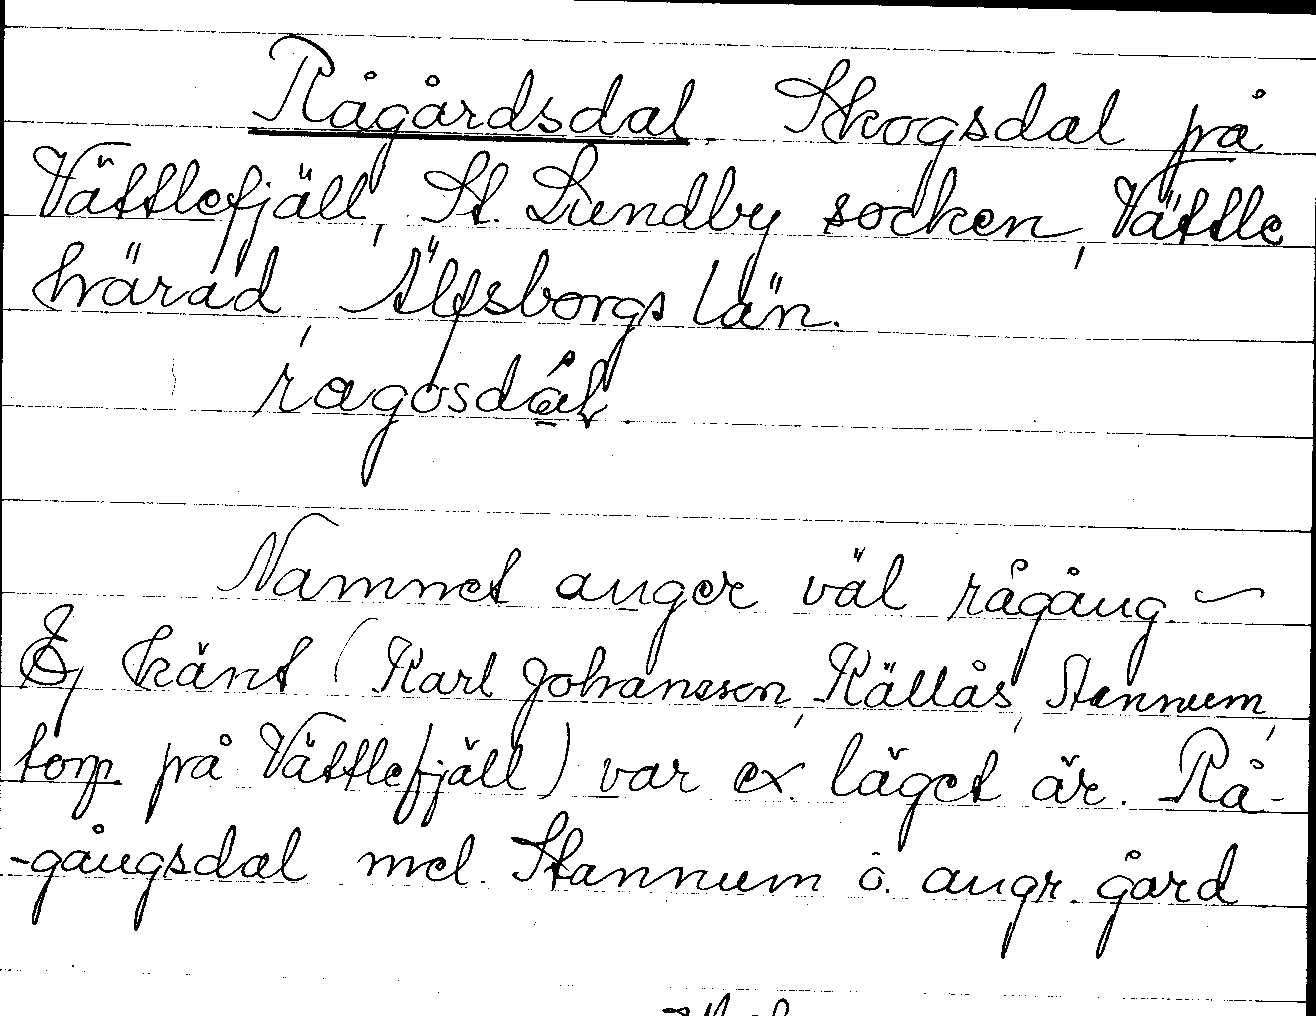 Rågårdsdal. Skogsdal på
Vättlefjäll, St. Lundby socken, Vättle
härad, Älfsborgs län.
ragosdal.
Namnet anger väl rågång. –
Ej känt (Karl Johansson, Källås, Stannum,
torp på Vättlefjäll) var ex. läget är. Rå-
-gångsdal mel. Stannum o. angr. gård